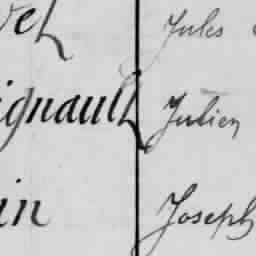 Jules
ignault Julien
in Joseph